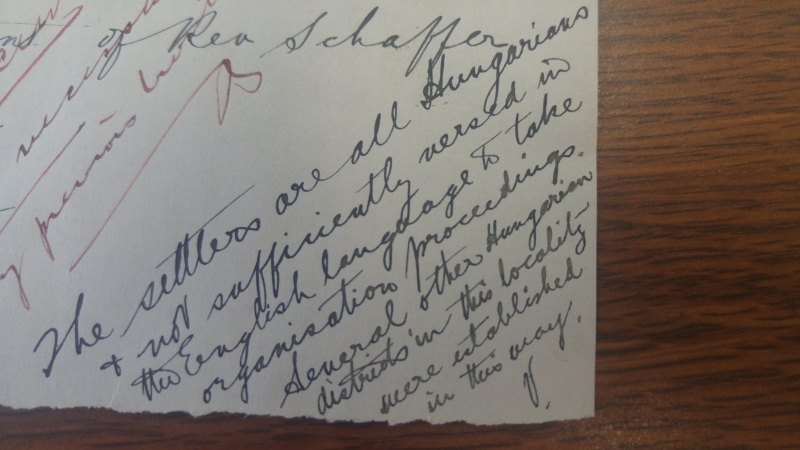 of Rev Schaffer
previous
The settlers are all Hungarians
& not sufficiently versed in
the English language to take
organisation proceedings.
Several other Hungarian
districts in this locality
were established
in this way.